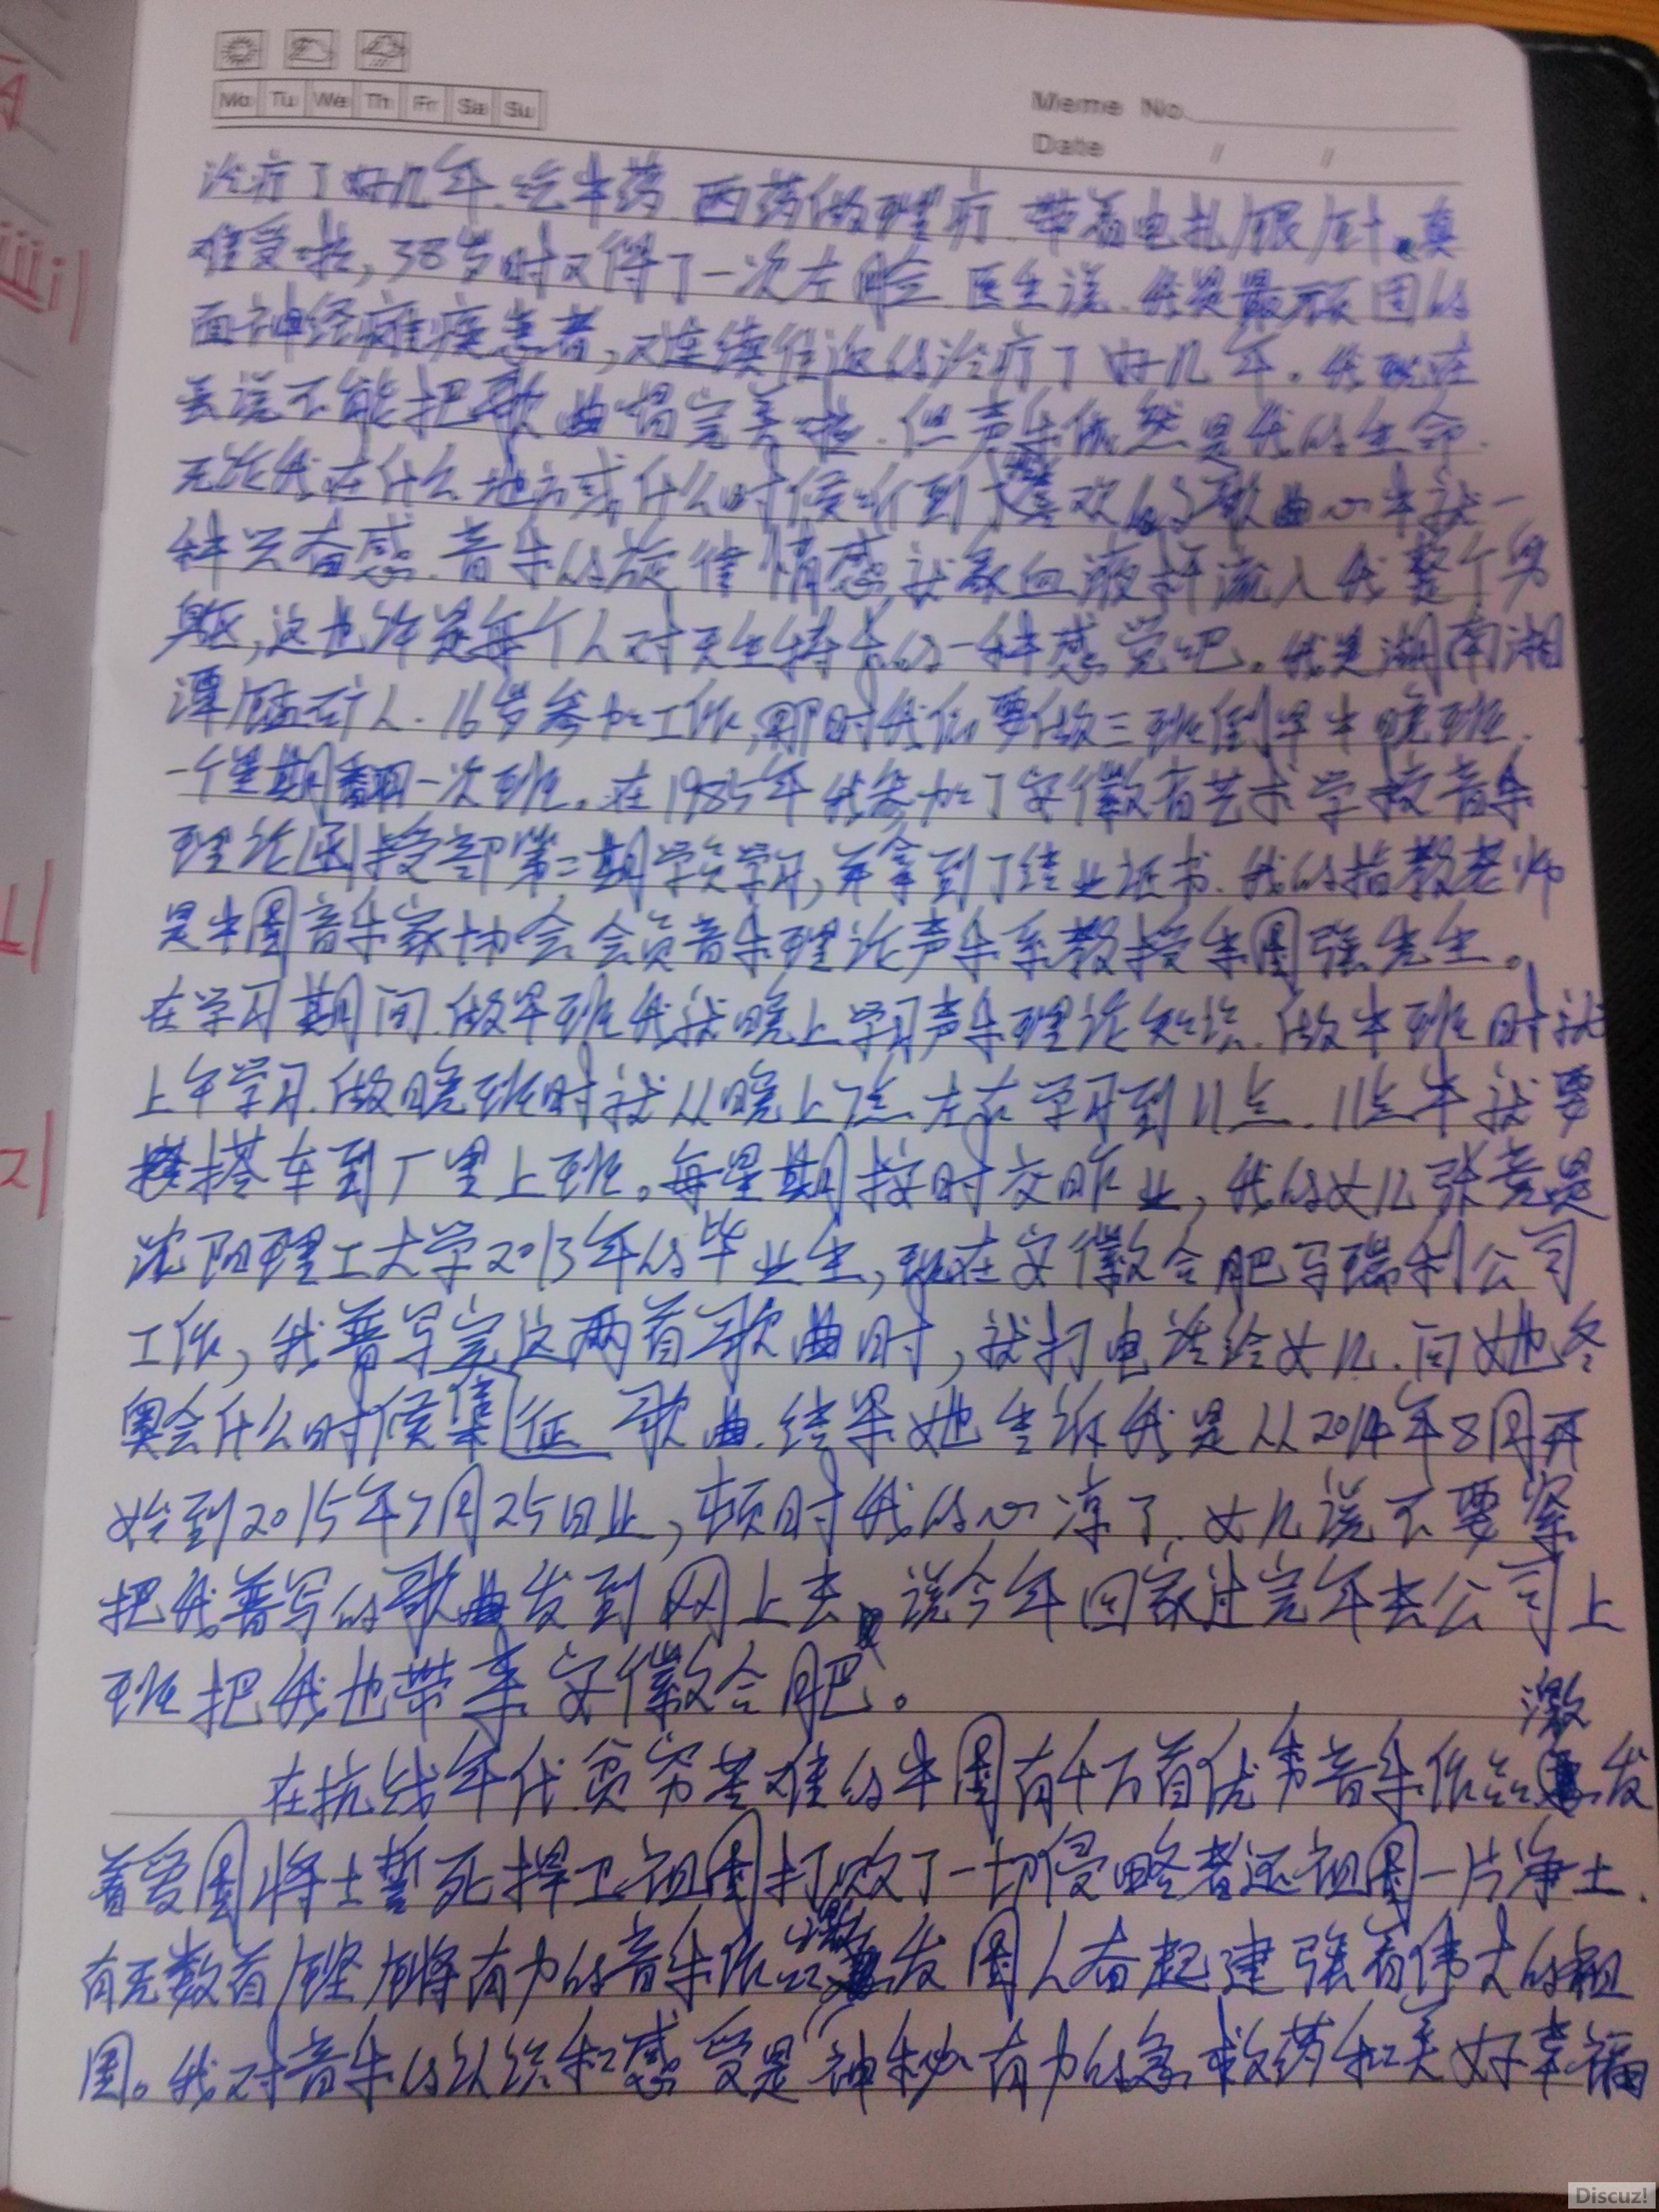 Mo Tu We Th Fr Sa Su
Meme No.
Date / /
治疗了好几年.吃中药.西药做理疗.带着电扎银针.真
难受啦,38岁时又得了一次左脸.医生说.我是最顽固的
面神经瘫痪患者,又连续往返的治疗了好几年。我现在
虽说不能把歌曲唱完美啦.但声乐依然是我的生命.
无论我在什么地方或什么时候听到了喜欢的歌曲心中就一
种兴奋感.音乐的旋律情感就象血液一样流入我整个身
躯,这也许是每个人对天生特长的一种感觉吧。我是湖南湘
潭锰矿人.16岁参加工作,那时我们要做三班倒早中晚班.
一个星期翻一次班。在1985年我参加了安徽省艺术学校音乐
理论函授部第二期学员学习,并拿到了结业证书.我的指教老师
是中国音乐家协会会员音乐理论声乐系教授朱国强先生。
在学习期间.做早班我就晚上学习声乐理论知识.做中班时就
上午学习.做晚班时就从晚上7点左右学习到11点.11点半就要
搭车到厂里上班。每星期按时交作业,我的女儿张亮是
沈阳理工大学2013年的毕业生,现在安徽合肥马瑞利公司
工作,我普写完这两首歌曲时,就打电话给女儿.问她冬
奥会什么时候集征歌曲.结果她告诉我是从2014年8月开
始到2015年7月25日止,顿时我的心凉了.女儿说不要紧
把我普写的歌曲发到网上去.说今年回家过完年去公司上
班把我也带来安徽合肥。
在抗战年代贫穷苦难的中国有千万首优秀音乐作品激发
着爱国将士誓死捍卫祖国打败了一切侵略者还祖国一片净土.
有无数首铿锵有力的音乐作品激发国人奋起建强着伟大的祖
国。我对音乐的认识和感受是神秘有力的急救药和美好幸福
Discuz!